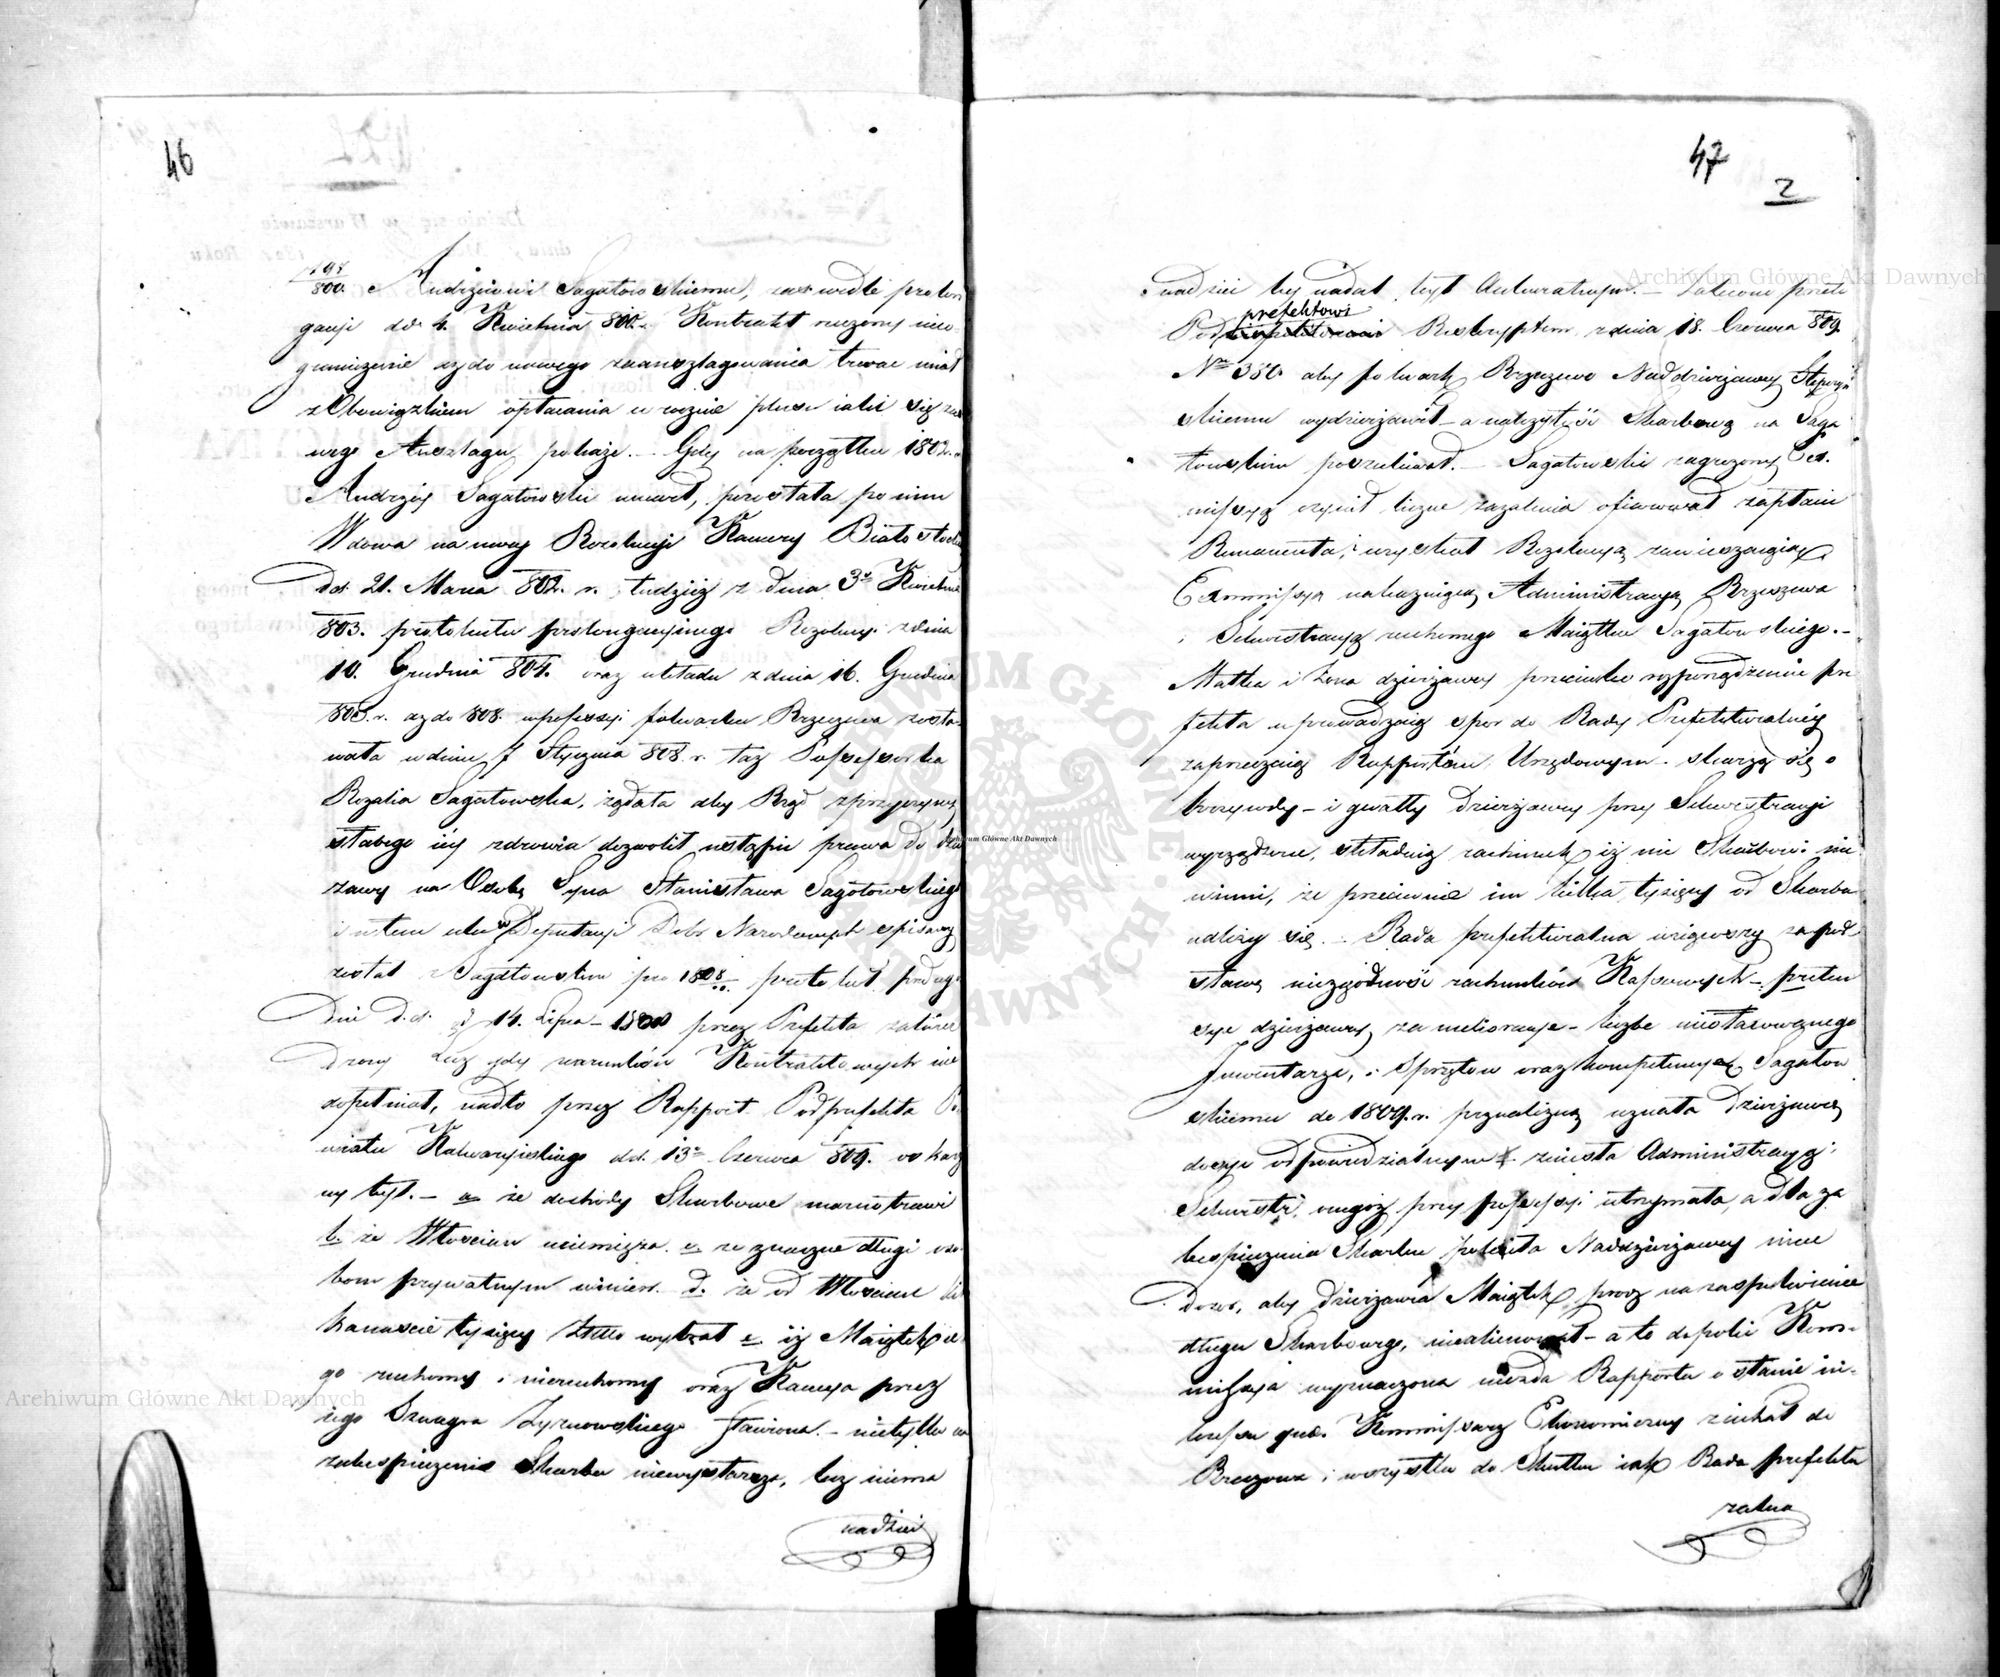 46
797/800. Andrzeiowi Sagatowskiemu, zaś wedle prolon
gacyi dd. 4. Kwietnia 800. Kontrakt rzeczony nieo-
graniczenie aż do nowego zaanszlagowania trwac miał
z Obowiązkiem opłacania w rocznie plusu iakie się z no
wego Anszlagu pokaże. – Gdy na początku 1802.
Andrzéy Sagatowski umarł, pozostała po nim
Wdowa na mocy Rezolucyi Kamery Białostockiey
dd. 21. Marca 802. r. tudzież z dnia 3go Kwietnia
803. protokułu prolongacyinego Rezolucyi z dnia
10. Grudnia 804. oraz układu z dnia 16. Grudnia
805. r. aż do 808. w possessyi folwarku Brzezowa zosta-
wała w dniu 7 Stycznia 808. r. taż Possessorka
Rozalia Sagatowska, żądała aby Rząd z przyczyny
słabego iéy zdrowia dozwolił ustąpić prawa do dzier
żawy na Osobę Syna Stanisława Sagatowskiego
i w tem celu z Deputacyi Dobr Narodowych spisany
został z Sagatowskim pro 1808 protokuł pod ug.
Dnie d.d. 14. Lipca – 1808 przez Prefekta zatwier
dzony Lecz gdy warunków Kontraktowych nie
dopełniał, nadto przez Rapport Podprefekta Po
wiatu Kalwaryiskiego dd. 13go Czerwca 809. oskarżo
ny był. – a. że dochody Skarbowe marnotrawi
b. że Włościan uciemięża. c. że znaczne długi oso-
bom prywatnym winien. d. że od Włościan kil
kanaście tysięcy Złłt. wybrał e. iż Maiątek ie
go ruchomy i nieruchomy oraz Kaucya przez
iego Szwagra Zyznowskiego stawiona. – nietylko na
zabespieczenie Skarbu niewystarcza, lecz niema
nadziei
47
2
nadziei by nadal był Akuratnym. – Zalecono przeto
prefektowi
Pod Reskryptem z dnia 18. Czerwca 809.
Nro 350. aby folwark Brzezowo Naddzierżawcy Stępczyń
skiemu wydzierżawił – a należytość Skarbową na Saga
towskim poszukiwał. – Sagatowski zagrożony Ex.
missyą czynił liczne zażalenia ofiarował zapłacić
Remanenta, i uzyskał Rezolucyą zawieszaiącą
Exmissyą nakazuiącą Administracyą Brzezowa
i Sekwestracyą ruchomego Maiątku Sagatowskiego. –
Matka i Zona dzierżawcy przeciwko rozporządzeniu pre
fekta wprowadzaią spor do Rady Prefekturalnéy
zaprzeczaią Rapportóm Urzędowym. skarżą się o
krzywdy – i gwałty Dzierżawcy przy Sekwestracyi
wyrządzone, składaią rachunek iż nie Skarbowi nie
winni, że przeciwnie im kilka tysięcy od Skarbu
należy się. – Rada prefekturalna wziąwszy za pod
stawę niezgodność rachunków Kassowych – preten
sye dzierżawcy za melioracye – liczbe niestosownego
Inwentarza, i Sprzętow oraz kompetencyą Sagatow
skiemu do 1809. r. przynależną uznała Dzierżawcę
odpowiedzialnym. zniosła Administracyą i
Sekwestr. onegoż przy possessyi utrzymała, a dla za
bespieczenia Skarbu poleciła Naddzierżawcy mieć
Dozor, aby dzierżawca Maiątek procz na zaspokoienie
długu Skarbowego, niealienował – a to dopoki Kom-
missya wyznaczona niezda Rapportu o stanie in-
teressu quo. Kommissarz Ekonomiczny ziechał do
Brzezowa i wszystko do Skutku iak Rada prefektu
ralna
Archiwum Główne Akt Dawnych
Archiwum Główne Akt Dawnych
Archiwum Główne Akt Dawnych
ARCHIWUM GŁÓWNE AKT DAWNYCH